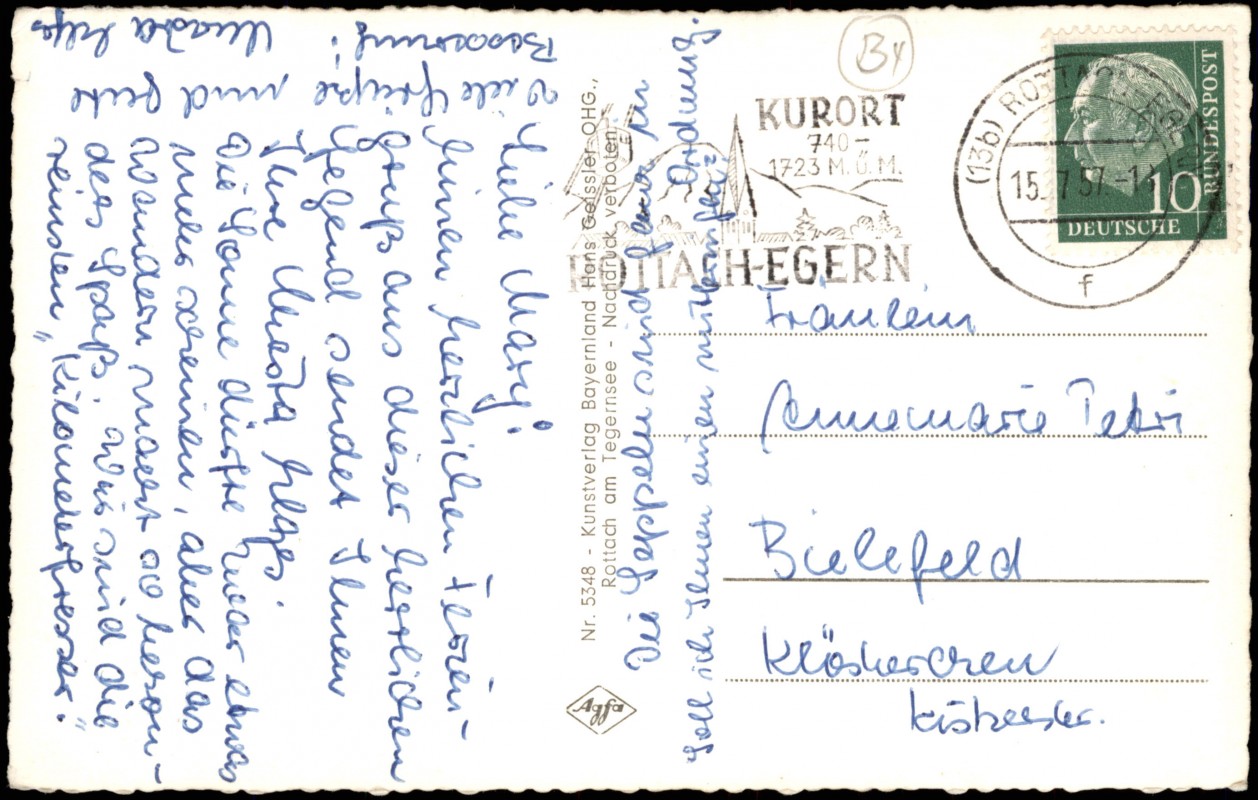 Liebe Mary!
Einen herzlichen Ferien-
gruß aus dieser herrlichen
Gegend sendet Ihnen
Ihre
Die Sonne dürfte zwar etwas
mehr scheinen, aber das
Wandern macht so beson-
ders Spaß. Wir sind die
reinsten „Kilometerfresser."
Viele Grüße und gute
Besserung!
Die sind ganz in Ordnung.
Soll ich Ihnen einen mitbringen?
Nr. 5348 - Kunstverlag Bayernland Hans Geissler OHG.,
Rottach am Tegernsee - Nachdruck verboten
Agfa
B4
KURORT
740-
1723 M.Ü.M.
ROTTACH-EGERN
(13b) ROTTACH-EGERN
15.7.57-1
f
DEUTSCHE BUNDESPOST
10
Fräulein
Annemarie Petri
Bielefeld